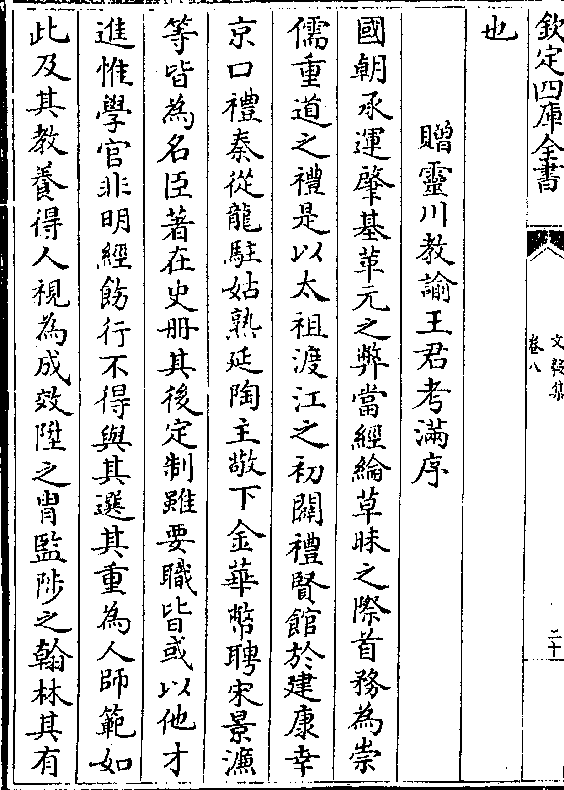 欽定四庫全書
文毅集
卷八
二十
也
贈靈川教諭王君考滿序
國朝承運肇基革元之弊當經綸草昧之際首務為崇
儒重道之禮是以太祖渡江之初闢禮賢館於建康幸
京口禮秦從龍駐姑熟延陶主敬下金華幣聘宋景濂
等皆為名臣著在史册其後定制雖要職皆或以他才
進惟學官非明經飭行不得與其選其重為人師範如
此及其教養得人視為成效陞之胄監陟之翰林其有